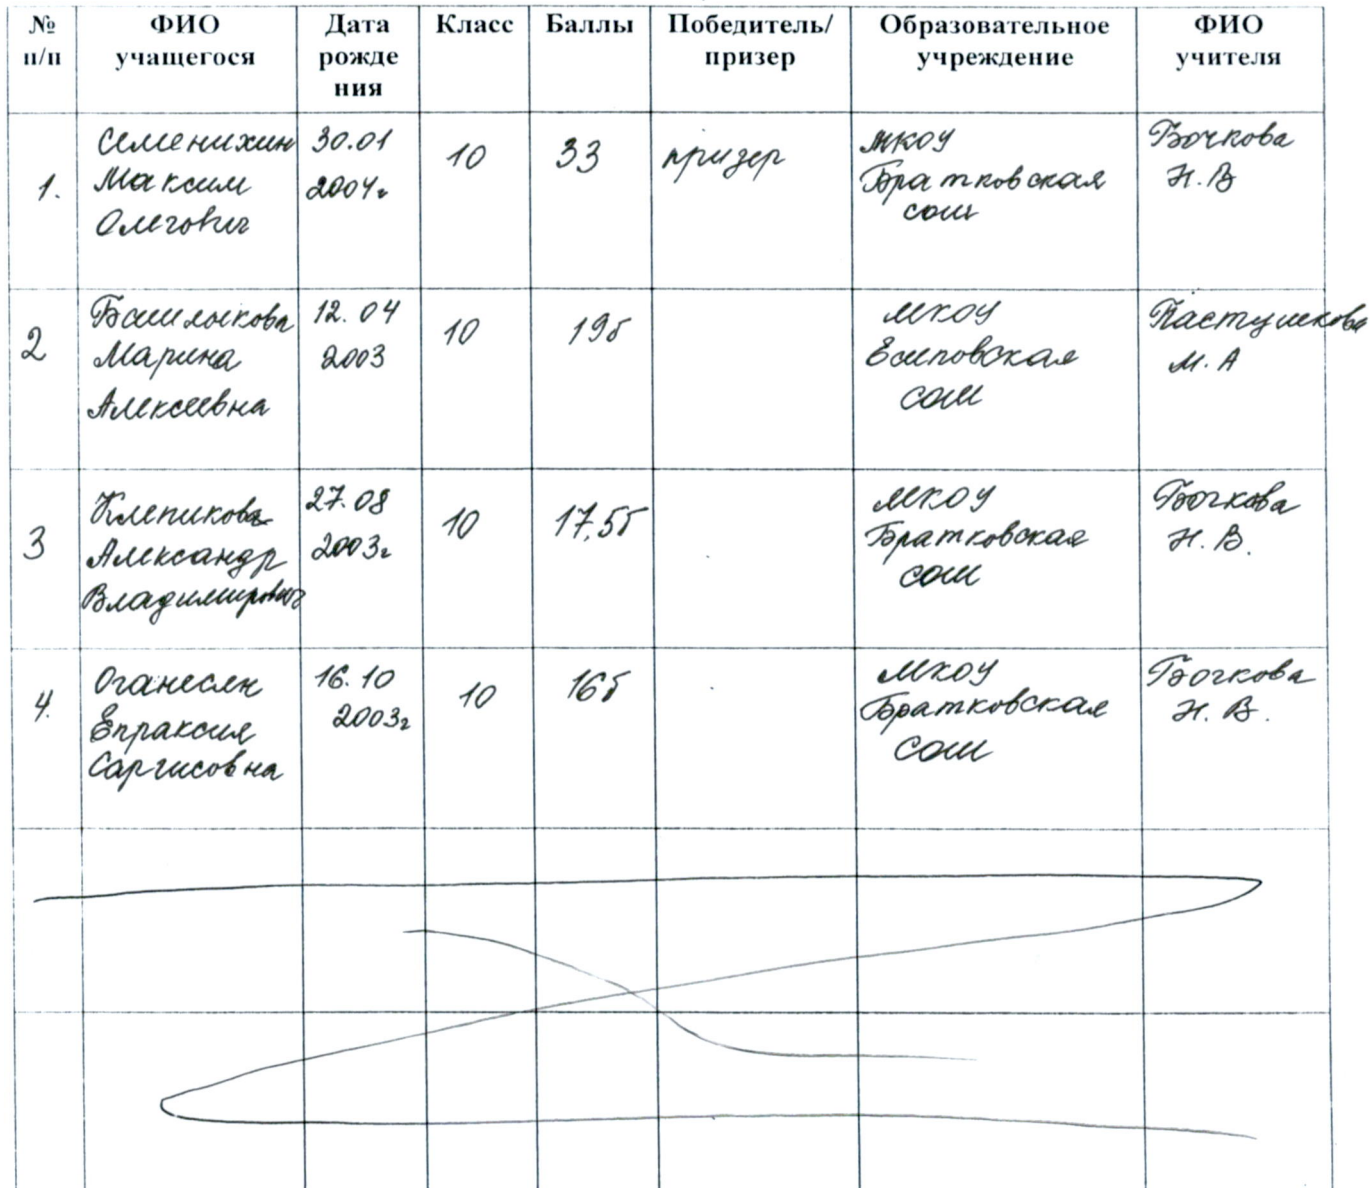 № п/п ФИО учащегося Дата рожде ния Класс Баллы Победитель/ призер Образовательное учреждение ФИО учителя
1. Семенихин Максим Олегович 30.01 2004г 10 33 призер МКОУ Братковская сош Бочкова Н.В
2 Марина Алексеевна 12.04 2003 10 19б МКОУ Есиповская СОШ Пастушкова М.А
3 Клепикова Александр Владимирович 27.08 2003г 10 17,5б МКОУ Братковская СОШ Бочкова Н.В.
4. Оганесян Епраксия Саргисовна 16.10 2003г 10 16б МКОУ Братковская СОШ Бочкова Н.В.